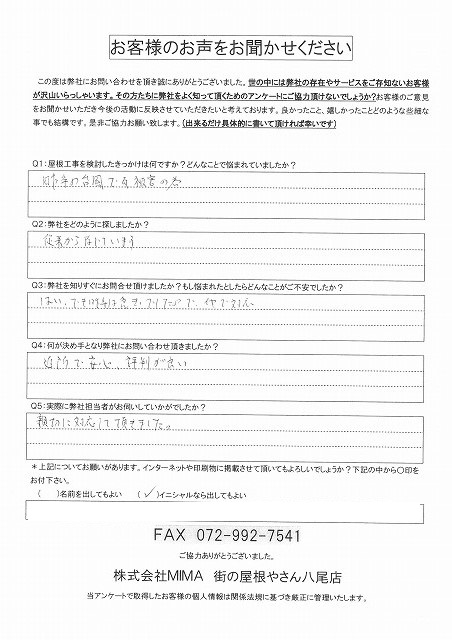 お客様のお声をお聞かせください
この度は弊社にお問い合わせを頂き誠にありがとうございました。世の中には弊社の存在やサービスをご存知ないお客様
が沢山いらっしゃいます。その方たちに弊社をよく知って頂くためのアンケートにご協力頂けないでしょうか?お客様のご意見
をお聞かせいただき今後の活動に反映させていただきたいと考えております。良かったこと、嬉しかったことどのような些細な
事でも結構です。是非ご協力お願い致します。(出来るだけ具体的に書いて頂ければ幸いです)
Q1:屋根工事を検討したきっかけは何ですか?どんなことで悩まれていましたか?
台風で
Q2:弊社をどのように探しましたか?
従来から存じています
Q3:弊社を知りすぐにお問合せ頂けましたか?もし悩まれたとしたらどんなことがご不安でしたか?
はい、
Q4:何が決め手となり弊社にお問い合わせ頂きましたか?
近所で安心、評判が良い
Q5:実際に弊社担当者がお伺いしていかがでしたか?
親切に対応して頂きました。
*上記についてお願いがあります。インターネットや印刷物に掲載させて頂いてもよろしいでしょうか?下記の中から〇印を
お付下さい。
( )名前を出してもよい (✓)イニシャルなら出してもよい
FAX 072-992-7541
ご協力ありがとうございました。
株式会社MIMA 街の屋根やさん八尾店
当アンケートで取得したお客様の個人情報は関係法規に基づき厳正に管理いたします。